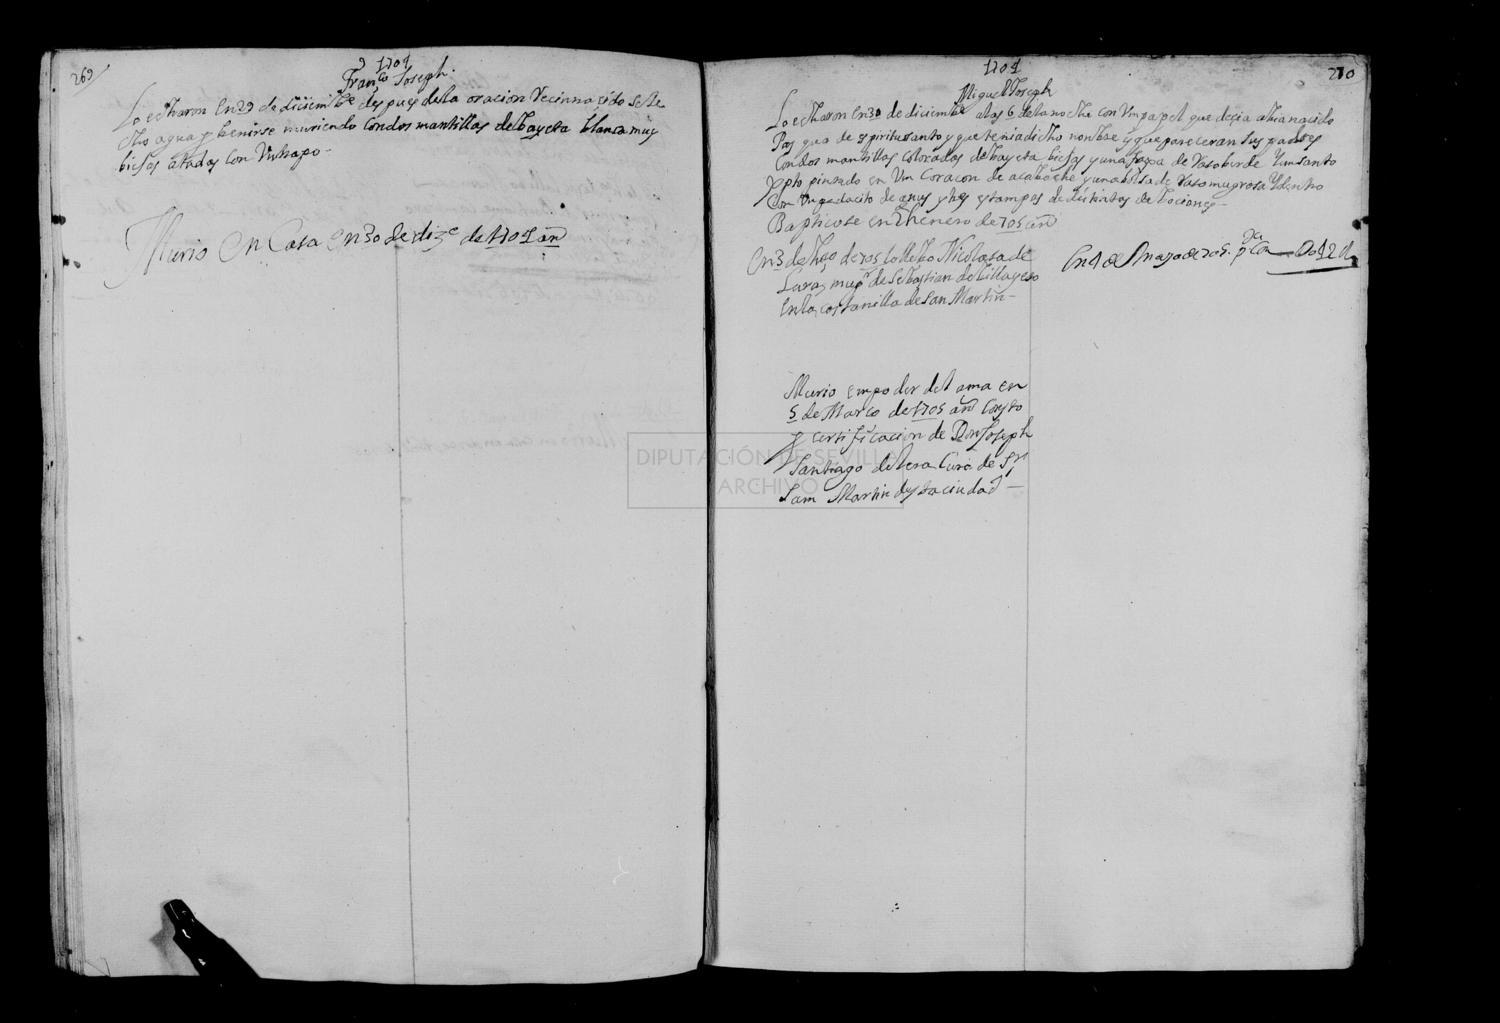 269
1704
Franco Joseph.
Lo echaron en 29 de diciembre despues de la oracion Recinnacido se le
hecho agua por benirse muriendo Con dos mantillas de bayeta blanca muy
biejas atadas Con Un trapo -
Murio En Casa en 30 de dize de 1704 an
1704
270
Miguel Joseph
Lo echaron en 30 de diciembre a las 6 de la noche con Un papel que decia abia nacido
Pasqua de espiritu santo y que tenia dicho nonbre y que pareceran sus padres
Con dos mantillas coloradas de bayeta biejas y una faxa de Raso birde Y un santo
Xpto pintado en Un Coracon de acabache y una bolsa de Raso mugrosa Y dentro
Con Un pedacito de y tres estampas de distintas debociones -
Bapticose en 2 henero de 705 an
En 3 de de 705 lo llebo Nicolasa de
Lara muger de Sebastian de billayeso
en la costanilla de San Martin -
En 4 de Mayo de 705. pca Do 12 R
Murio en poder del ama en
5 de Março de 1705 an Consto
por certificacion de Don Joseph
Santiago de Cura de Sr
San Martin desta ciudad -
DIPUTACIÓN DE SEVILLA
ARCHIVO